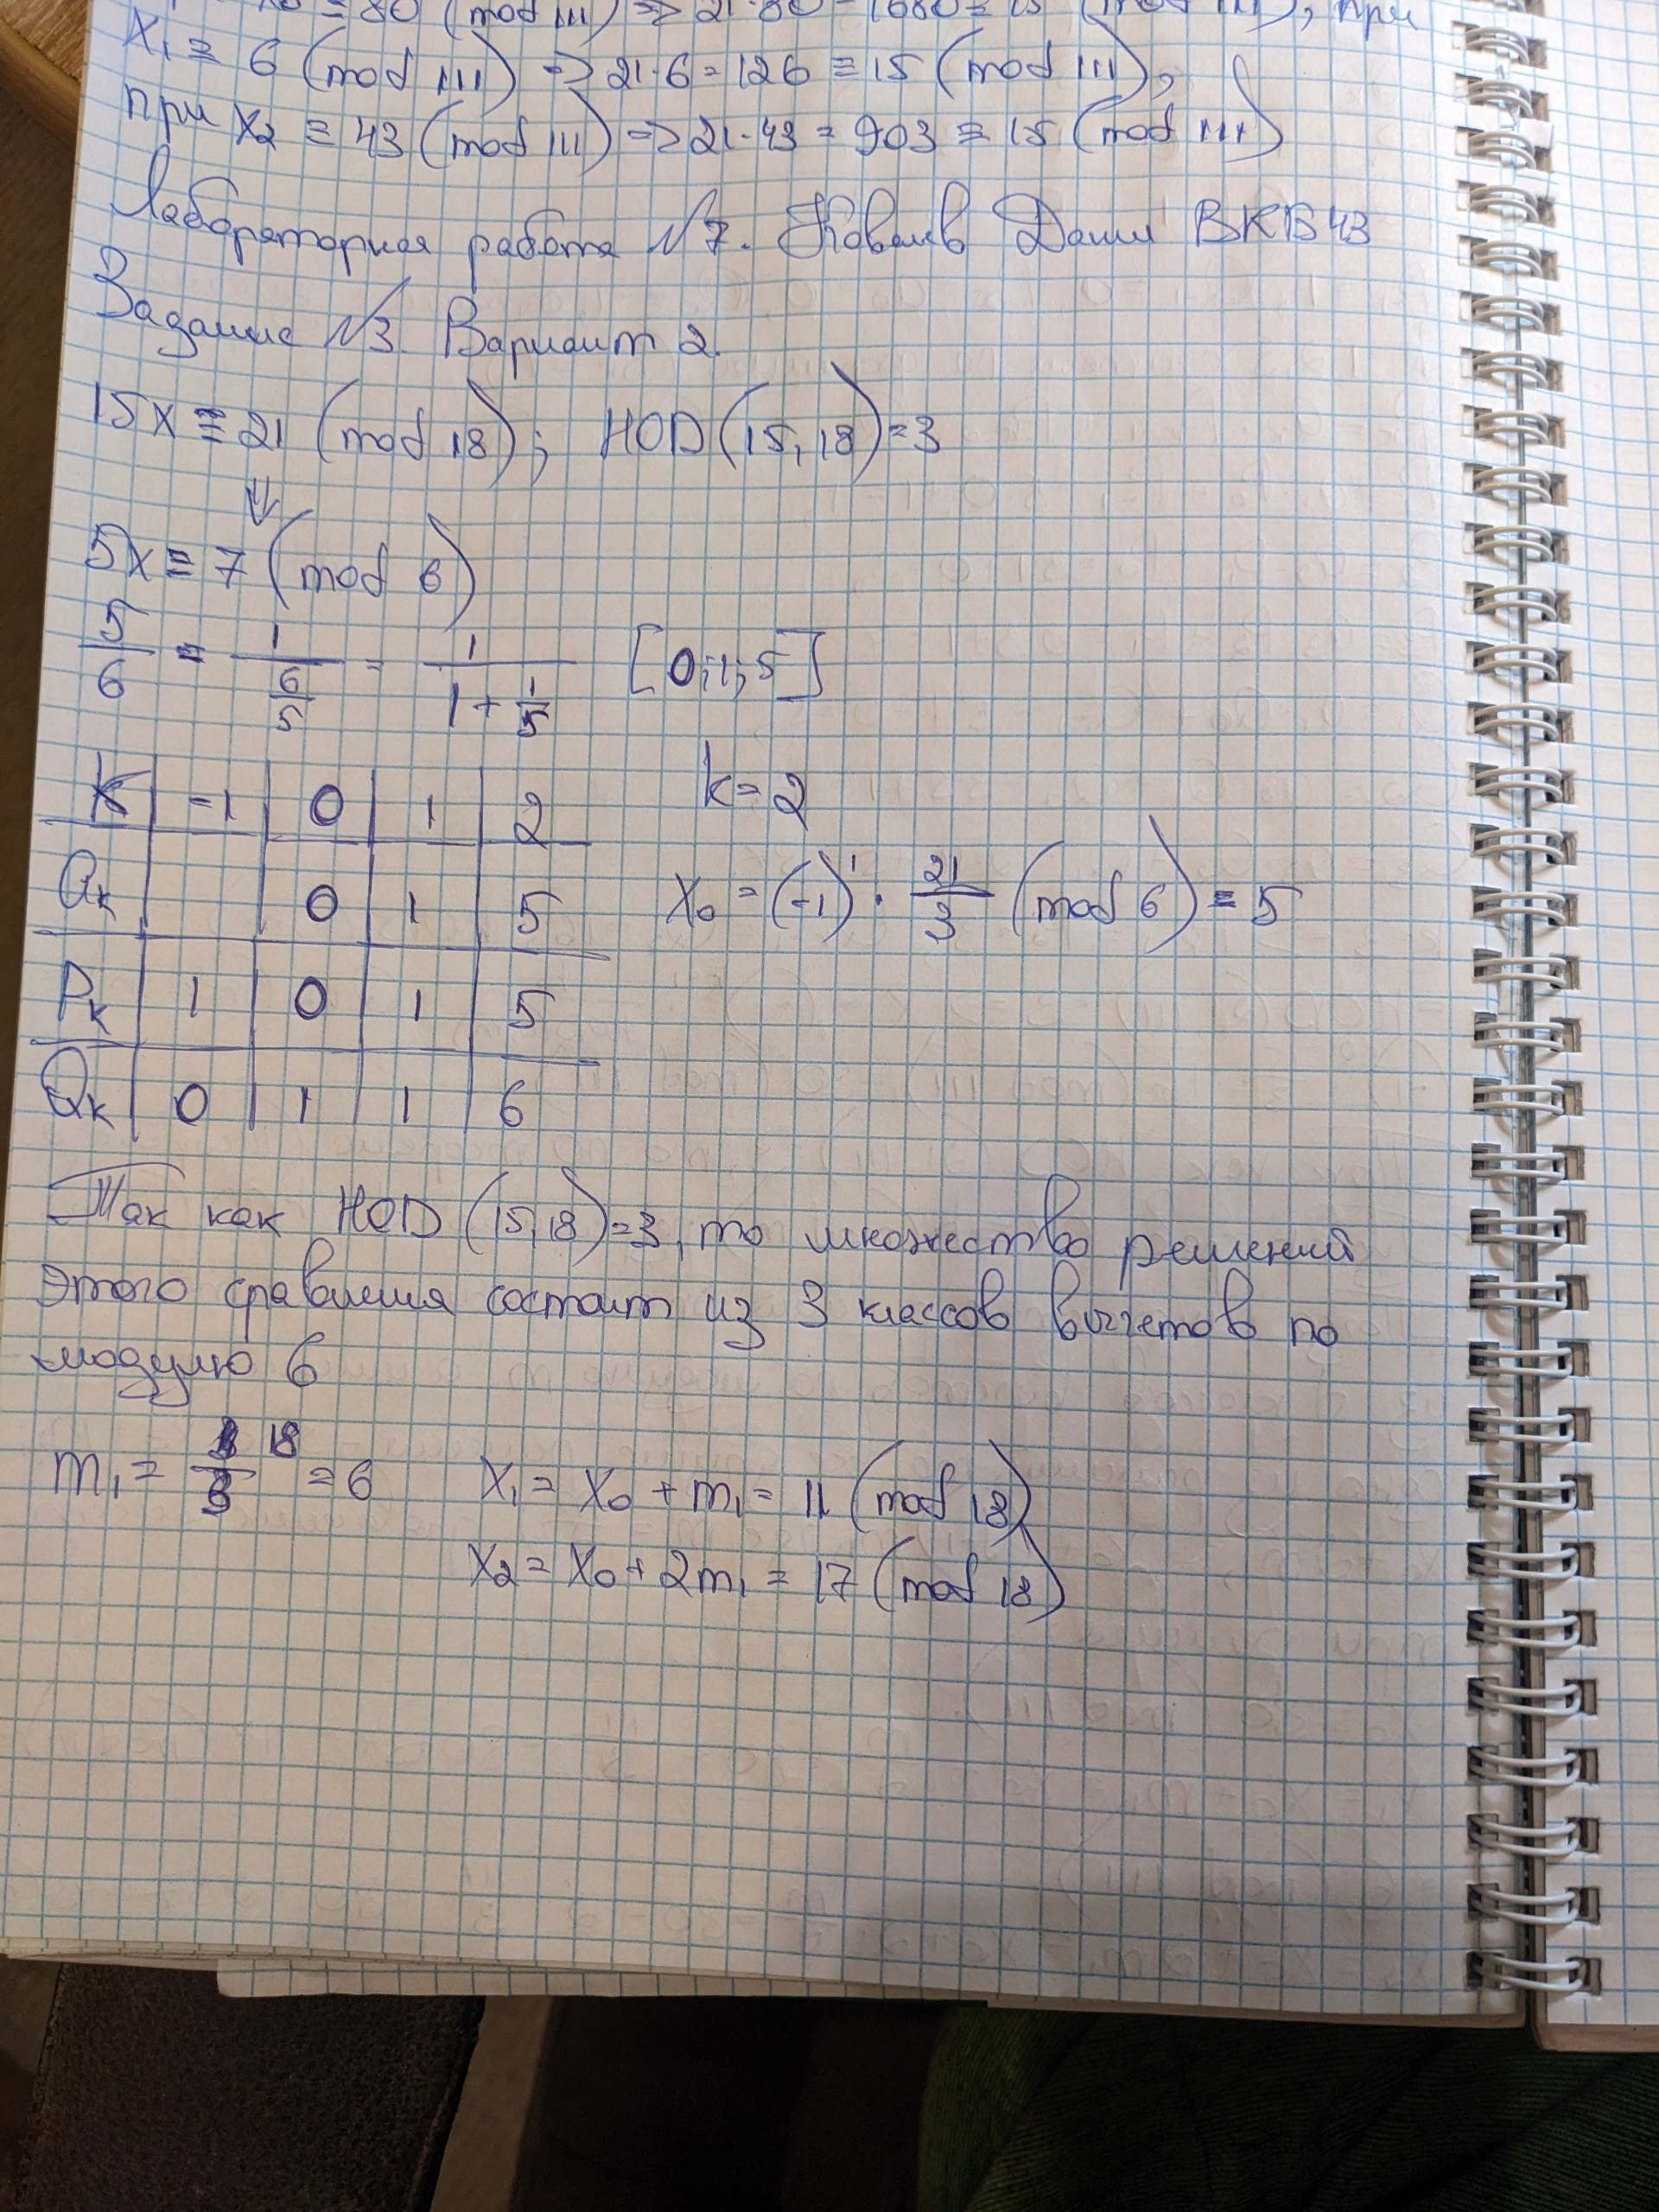 x₀ ≡ 80 (mod 111) => 21·80 = 1680 ≡ 15 (mod 111), при
x₁ ≡ 6 (mod 111) => 21·6 = 126 ≡ 15 (mod 111),
при x₂ ≡ 43 (mod 111) => 21·43 = 903 ≡ 15 (mod 111)
Лабораторная работа №7. Ковалев Данил ВКБ43
Задание №3. Вариант 2.
15x ≡ 21 (mod 18); НОД(15, 18) = 3
⇓
5x ≡ 7 (mod 6)
5/6 = 1/(6/5) = 1/(1 + 1/5) [0; 1; 5]
K | -1 | 0 | 1 | 2
k = 2
Qк | | 0 | 1 | 5
x₀ = (-1)¹ · 21/3 (mod 6) = 5
Pк | 1 | 0 | 1 | 5
Qк | 0 | 1 | 1 | 6
Так как НОД (15, 18) = 3, то множество решений
этого сравнения состоит из 3 классов вычетов по
модулю 6
m₁ = 18/3 = 6 x₁ = x₀ + m₁ = 11 (mod 18)
x₂ = x₀ + 2m₁ = 17 (mod 18)